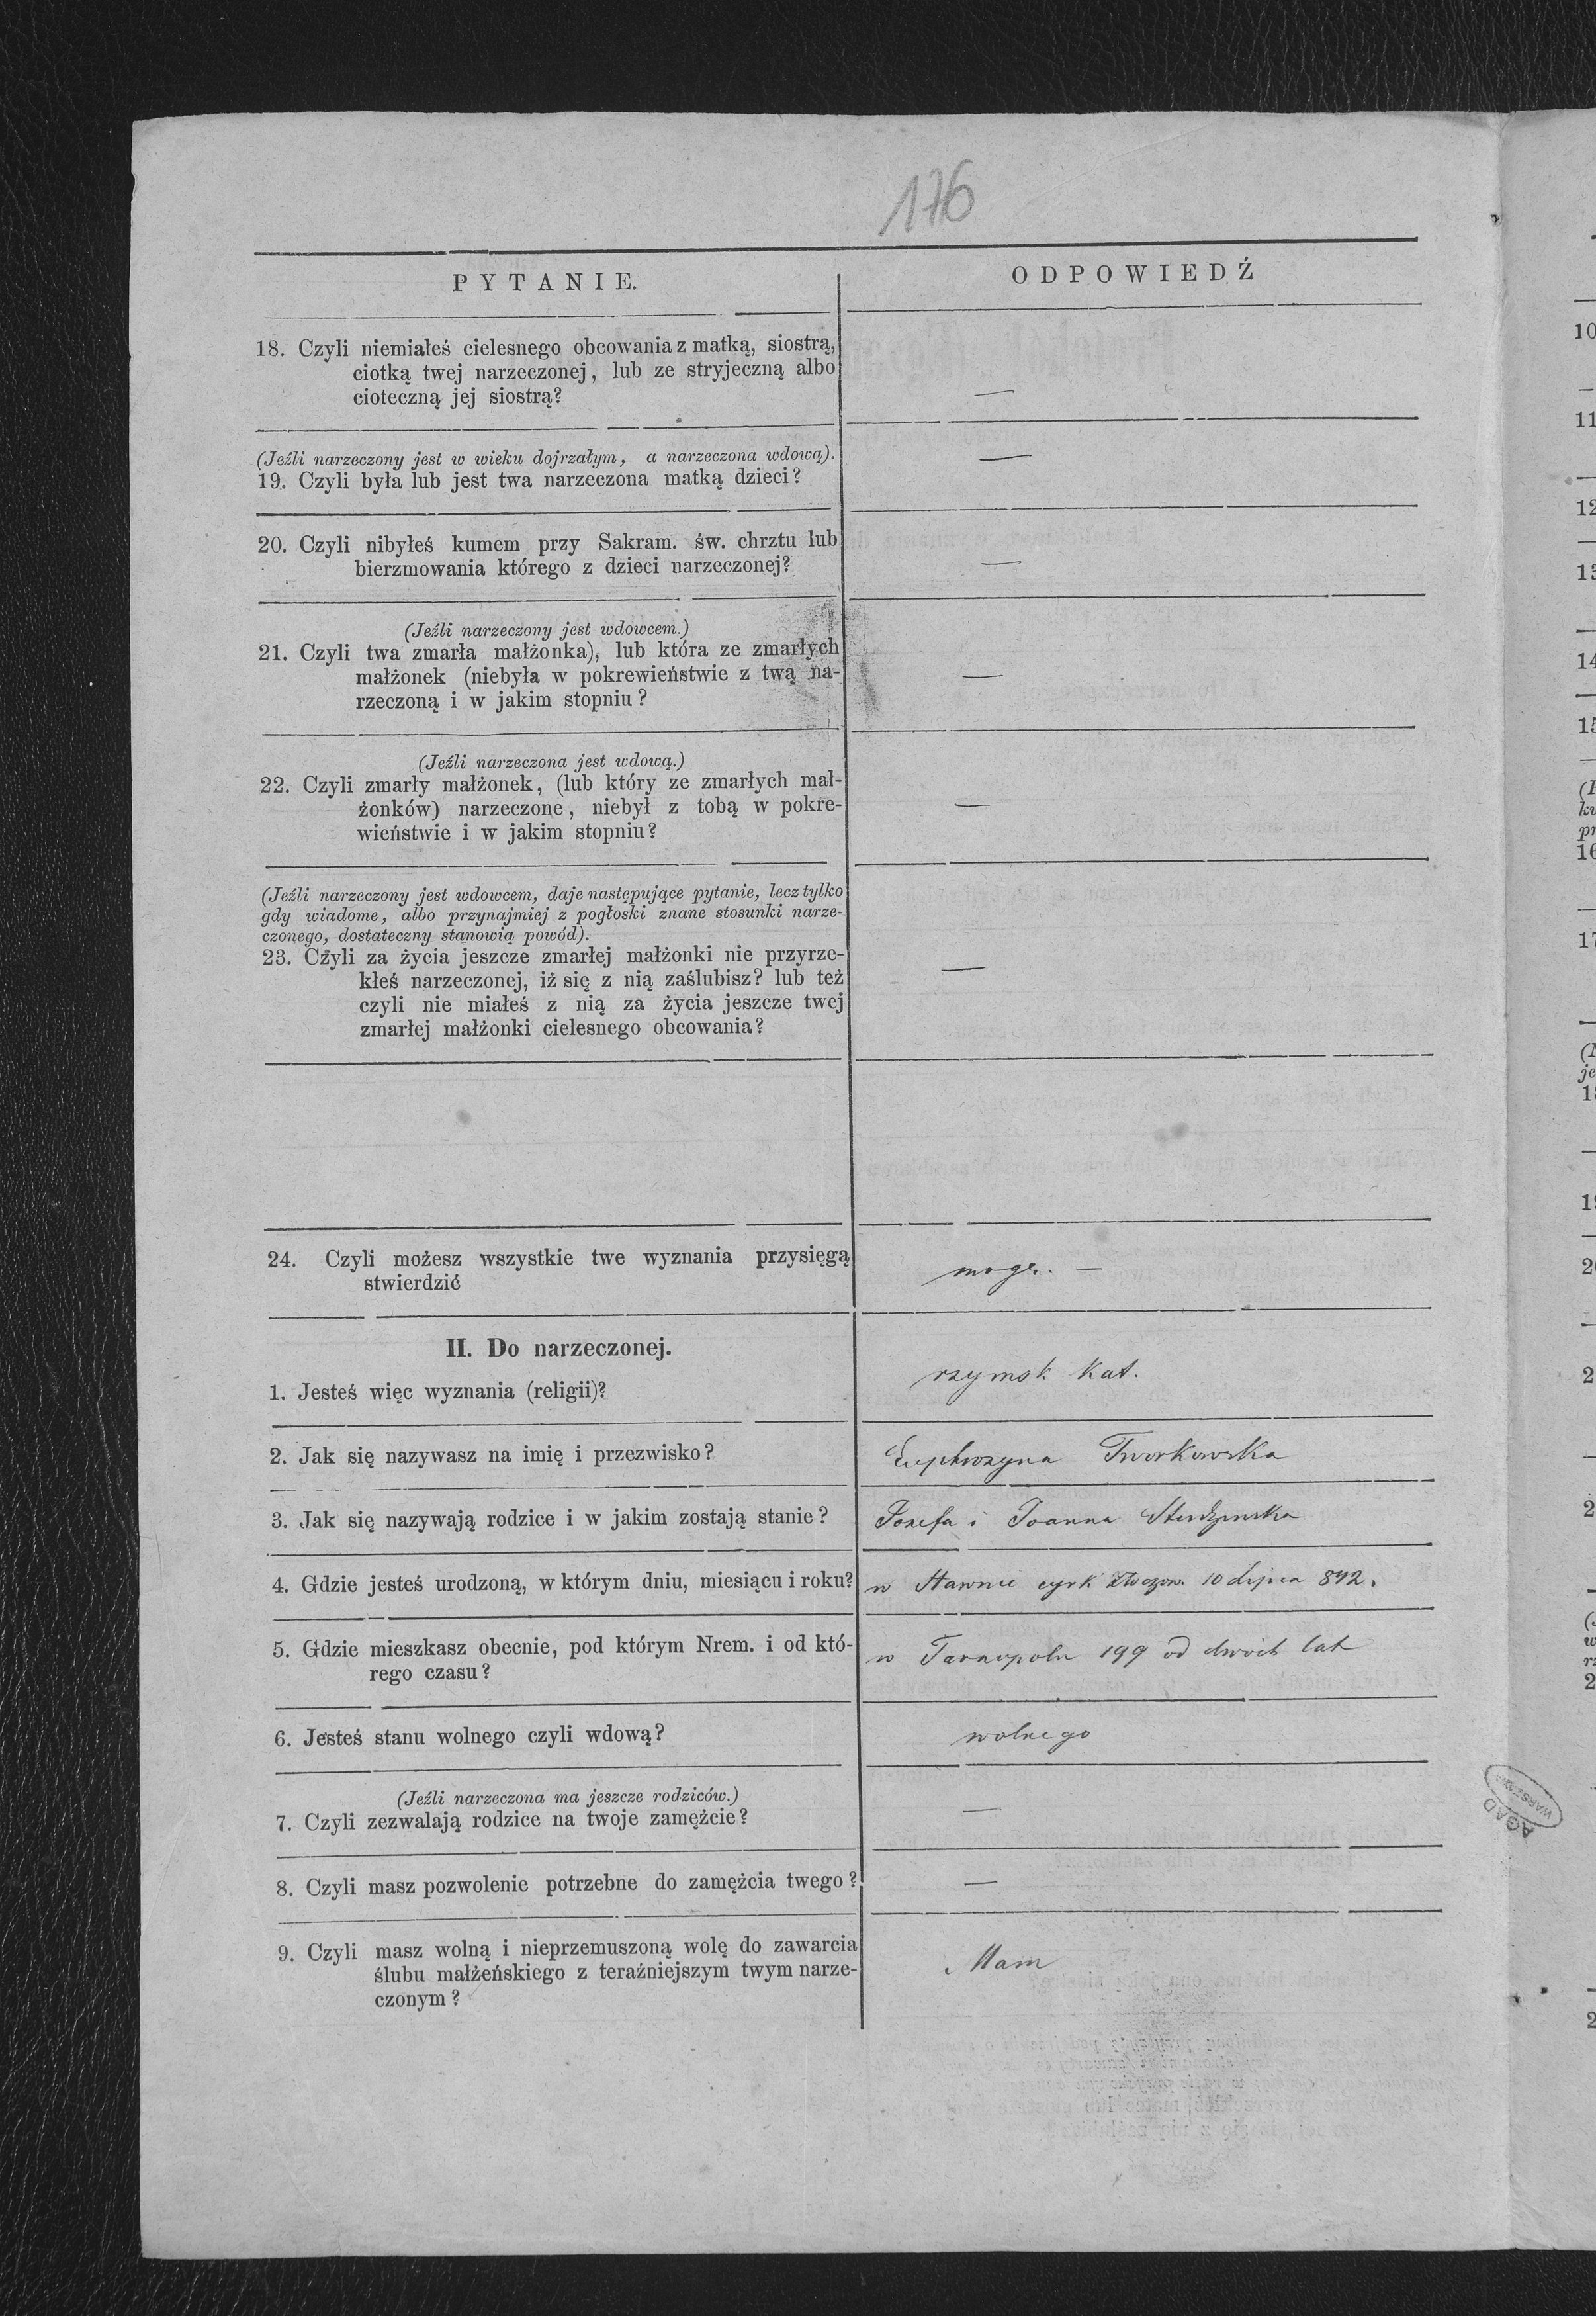 176
PYTANIE.
ODPOWIEDŹ
18. Czyli niemiałeś cielesnego obcowania z matką, siostrą,
ciotką twej narzeczonej, lub ze stryjeczną albo
cioteczną jej siostrą?
—
(Jeźli narzeczony jest w wieku dojrzałym, a narzeczona wdową).
19. Czyli była lub jest twa narzeczona matką dzieci?
—
20. Czyli nibyłeś kumem przy Sakram. św. chrztu lub
bierzmowania którego z dzieci narzeczonej?
—
(Jeźli narzeczony jest wdowcem.)
21. Czyli twa zmarła małżonka), lub która ze zmarłych
małżonek (niebyła w pokrewieństwie z twą na-
rzeczoną i w jakim stopniu?
—
(Jeźli narzeczona jest wdową.)
22. Czyli zmarły małżonek, (lub który ze zmarłych mał-
żonków) narzeczone, niebył z tobą w pokre-
wieństwie i w jakim stopniu?
—
(Jeźli narzeczony jest wdowcem, daje następujące pytanie, lecz tylko
gdy wiadome, albo przynajmiej z pogłoski znane stosunki narze-
czonego, dostateczny stanowią powód).
23. Czyli za życia jeszcze zmarłej małżonki nie przyrze-
kłeś narzeczonej, iż się z nią zaślubisz? lub też
czyli nie miałeś z nią za życia jeszcze twej
zmarłej małżonki cielesnego obcowania?
—
24. Czyli możesz wszystkie twe wyznania przysięgą
stwierdzić
moge. —
II. Do narzeczonej.
1. Jesteś więc wyznania (religii)?
rzymsk Kat.
2. Jak się nazywasz na imię i przezwisko?
Euphrozyna Tworkowska
3. Jak się nazywają rodzice i w jakim zostają stanie?
Jozefa i Joanna
4. Gdzie jesteś urodzoną, w którym dniu, miesiącu i roku?
w cyrk Złoczow. 10 Lipca 842.
5. Gdzie mieszkasz obecnie, pod którym Nrem. i od któ-
rego czasu?
w Tarnopolu 199 od dwóch lat
6. Jesteś stanu wolnego czyli wdową?
wolnego
(Jeźli narzeczona ma jeszcze rodziców.)
7. Czyli zezwalają rodzice na twoje zamężcie?
—
8. Czyli masz pozwolenie potrzebne do zamężcia twego?
—
9. Czyli masz wolną i nieprzemuszoną wolę do zawarcia
ślubu małżeńskiego z teraźniejszym twym narze-
czonym?
Mam
AGAD
WARSZAWA
10
11
12
13
14
15
16
17